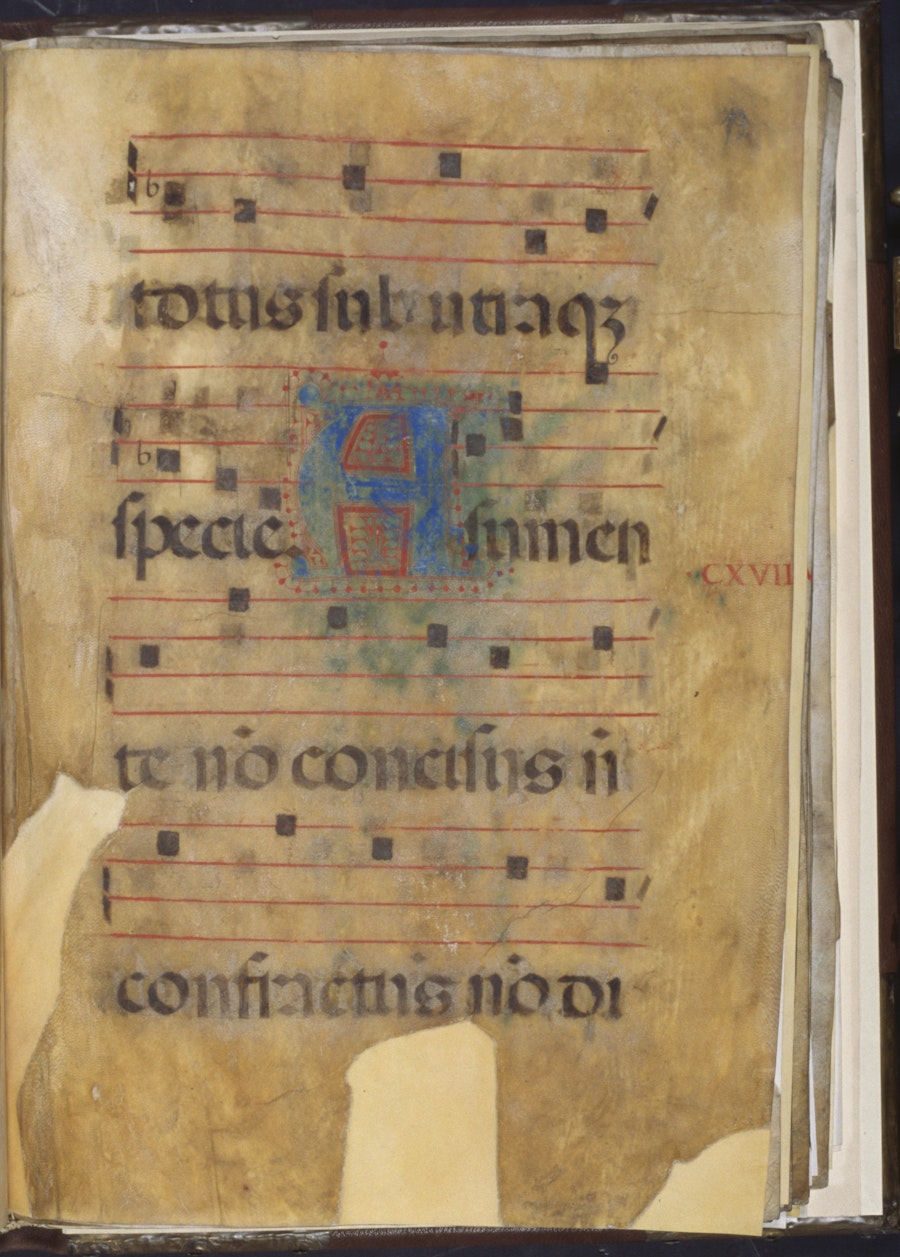 totus sub utraq3
specie. A sumen
te nō concisus n̄
confractus nō di
CXVII